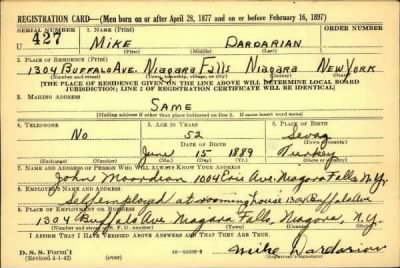 REGISTRATION CARD—(Men born on or after April 28, 1877 and on or before February 16, 1897)
SERIAL NUMBER 1. NAME (Print) ORDER NUMBER
U 427 MIKE DARDARIAN
(First) (Middle) (Last)
2. PLACE OF RESIDENCE (Print)
1304 BUFFALO AVE. NIAGARA FALLS NIAGARA NEW YORK
(Number and street) (Town, township, village, or city) (County) (State)
[THE PLACE OF RESIDENCE GIVEN ON THE LINE ABOVE WILL DETERMINE LOCAL BOARD
JURISDICTION; LINE 2 OF REGISTRATION CERTIFICATE WILL BE IDENTICAL]
3. MAILING ADDRESS
SAME
(Mailing address if other than place indicated on line 2. If same insert word same)
4. TELEPHONE 5. AGE IN YEARS 6. PLACE OF BIRTH
NO 52 Sevag
DATE OF BIRTH (Town or county)
June 15 1889 Turkey
(Exchange) (Number) (Mo.) (Day) (Yr.) (State or country)
7. NAME AND ADDRESS OF PERSON WHO WILL ALWAYS KNOW YOUR ADDRESS
John 1004 Erie Ave. Niagara Falls, N.Y.
8. EMPLOYER'S NAME AND ADDRESS
Self employed at rooming house 1304 Buffalo Ave
9. PLACE OF EMPLOYMENT OR BUSINESS
1304 Buffalo Ave Niagara Falls, Niagara, N.Y.
(Number and street or R. F. D. number) (Town) (County) (State)
I AFFIRM THAT I HAVE VERIFIED ABOVE ANSWERS AND THAT THEY ARE TRUE.
D. S. S. Form 1
(Revised 4-1-42) (over) Mike Dardarian
(Registrant's signature)